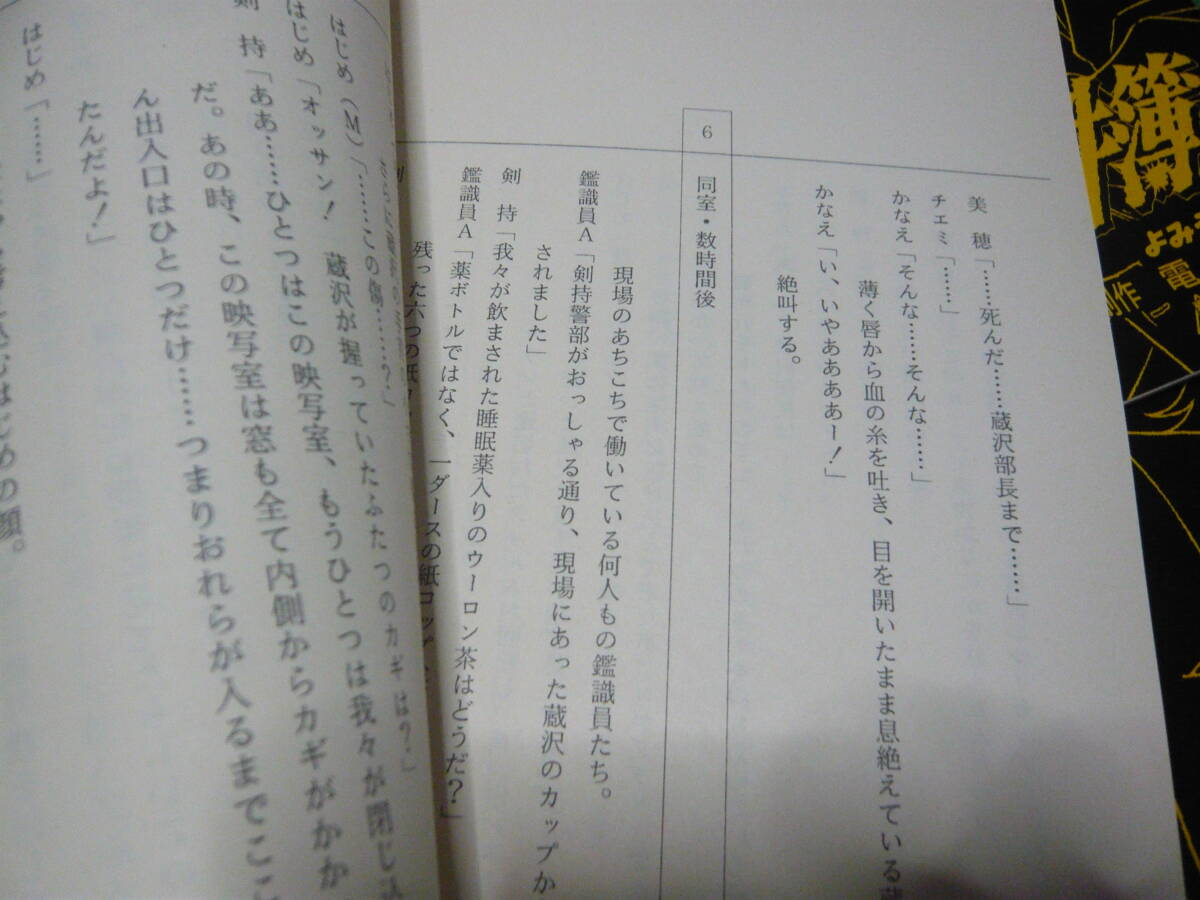 簿
よみ
電
制作
美　穂「……死んだ……蔵沢部長まで……」
チェミ「……」
かなえ「そんな……そんな……」
薄く唇から血の糸を吐き、目を開いたまま息絶えている蔵
かなえ「い、いやああああー！」
絶叫する。
6　同室・数時間後
現場のあちこちで働いている何人もの鑑識員たち。
鑑識員Ａ「剣持警部がおっしゃる通り、現場にあった蔵沢のカップか
されました」
剣　持「我々が飲まされた睡眠薬入りのウーロン茶はどうだ？」
鑑識員Ａ「薬ボトルではなく、一ダースの紙コップ
残った六つの紙
はじめ（Ｍ）「……この傷……？」
はじめ「オッサン！　蔵沢が握っていたふたつのカギは？」
剣　持「ああ……ひとつはこの映写室、もうひとつは我々が閉じ込
だ。あの時、この映写室は窓も全て内側からカギがかか
ん出入口はひとつだけ……つまりおれらが入るまでここ
たんだよ！」
はじめ「……」
はじめの顔。